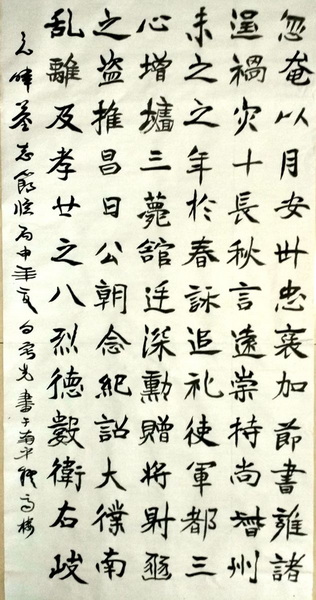 忽奄以月安丗忠襄加節書誰諸
逞禍灾十長秋言遠崇持尚督州
未之之年於春詠追礼使軍都三
心增壚三薨舘迁深勳贈將射
之盗推昌日公朝念紀詔大僕南
乱離及孝廿之八烈德數衛右岐
元暐墓志節临丙申年夏白先書于平高楼